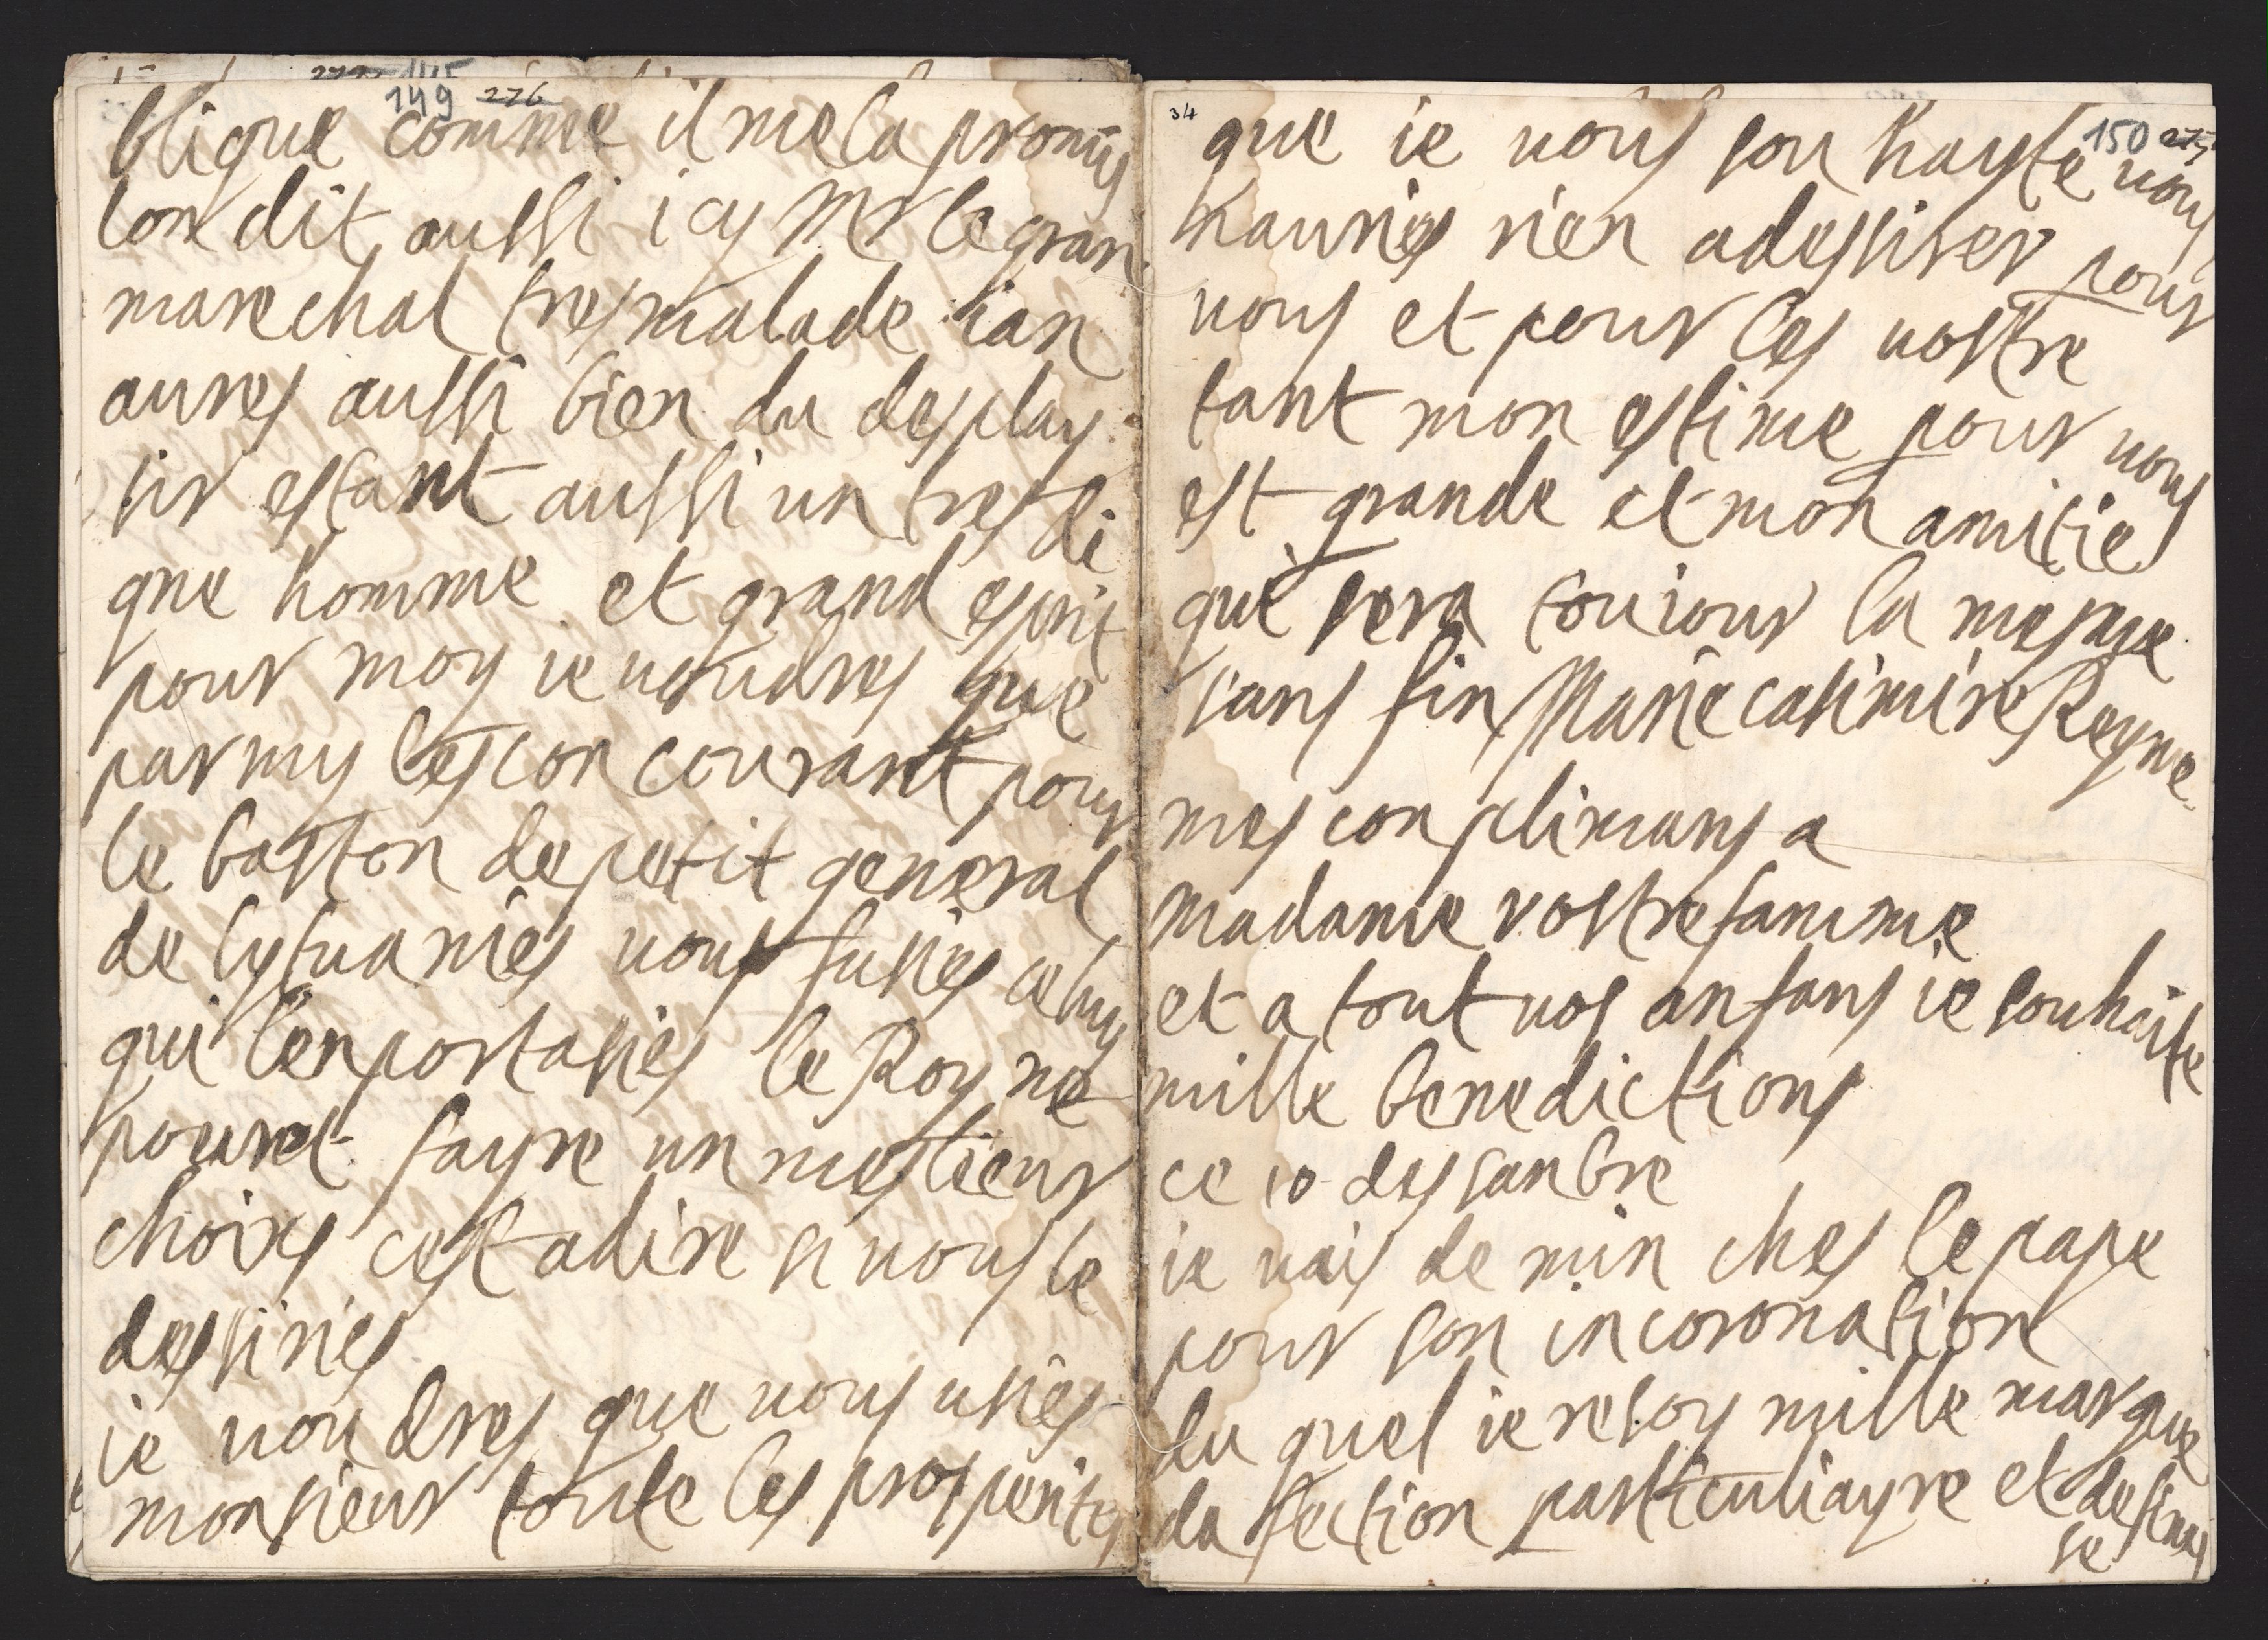 149 276
blique comme il me la promis
lon dit aussi icy Mr le gran
marechal tres malade ian
aures aussi bien du desplay
sir estant aussi un tres di
gne homme et grand esprit
pour moy ie voudres que
parmy les con courant pour
le baston de petit general
de lytuanies vous fusies celuy
qui l'enportasies le Roy ne
pouret fayre un mestieur
choixs cest a dire si vous le
dessiries
ie voudres que vous usies
monsieur toute les prosperites
34 150 275
que ie vous sou hayte vous
naunies rien a dessirer pour
vous et pour les vostre
tant mon estime pour vous
est grande et mon amitie
qui sera touiour la mesme
sans fin Marie casimire Reyne
mes conplimans a
madame vostre famme
et a tout vos anfans ie souhaite
mille benedictions
ce 10 dessanbre
ie vais de min ches le pape
pour son incoronation
du quel ie resoy mille marque
da fection particuliayre et destime
se